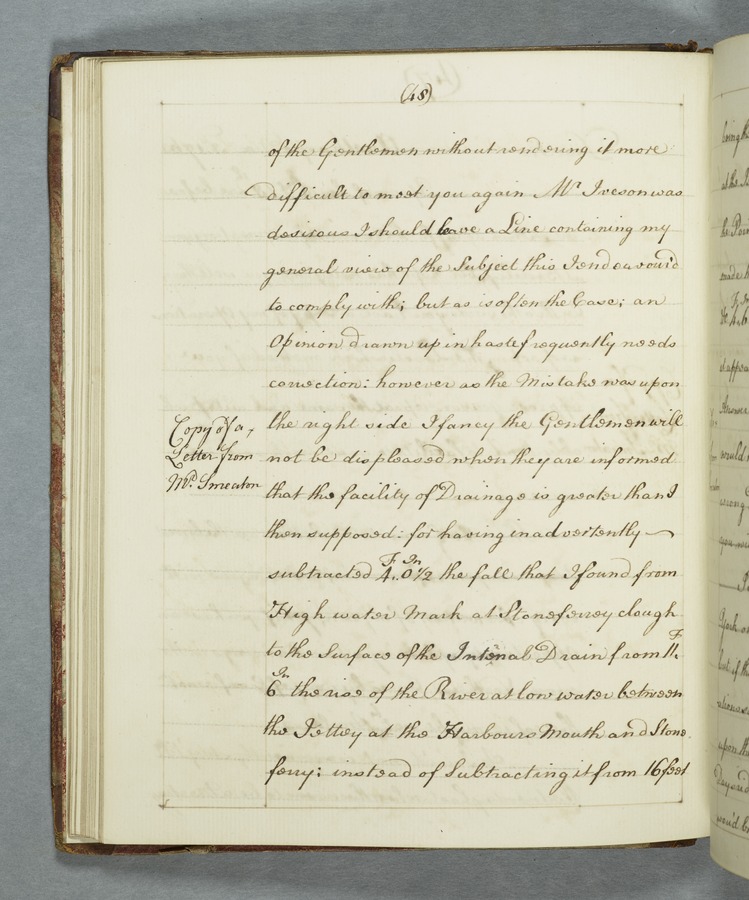 (48)
of the Gentlemen without rendering it more
difficult to meet you again Mr. Iveson was
desirous I should leave a Line containing my
general view of the Subject this I endeavour'd
to comply with; but as is often the Case; an
Opinion drawn up in haste frequently needs
correction: however as the Mistake was upon
the right side I fancy the Gentlemen will
not be displeased when they are informed
that the facility of Drainage is greater than I
then supposed: for having inadvertently
subtracted 4 F. 0½ In the fall that I found from
High water Mark at Stoneferrey clough
to the Surface of the Internal Drain from 11 F.
6 In the rise of the River at low water between
the Jettey at the Harbours Mouth and Stone
ferry; instead of Subtracting it from 16 feet
Copy of a
Letter from
Mr. Smeaton